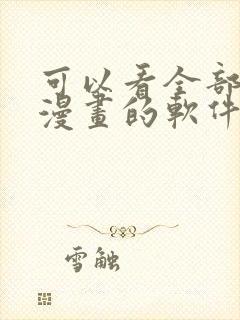 可以看全部
漫畫的軟件
雪触